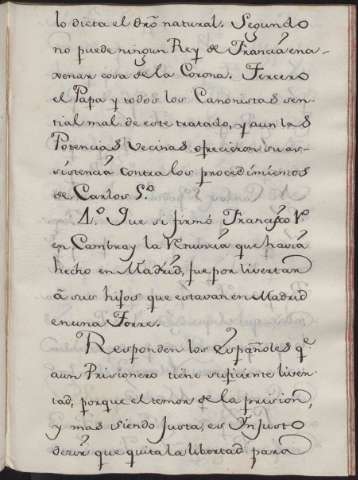 lo dicta el dro natural. Segundo
no puede ningun Rey de Francia ena-
xenar cosa de la Corona. Tercero
el Papa y todos los Canonistas sen-
tian mal de este tratado, y aun las
Potencias Vecinas ofrecieron su as-
sistencia contra los procedimientos
de Carlos 5º
4.º Que si firmó Francisco Vº
en Cambray la renuncia que havia
hecho en Madrid, fue por livertar
à sus hijos que estavan en Madrid
en una Torre.
Responden los Españoles q.e
aun Prisionero tiene suficiente liver-
tad, porque el temor de la prision,
y mas siendo justa, es Injusto
decir que quita la libertad para